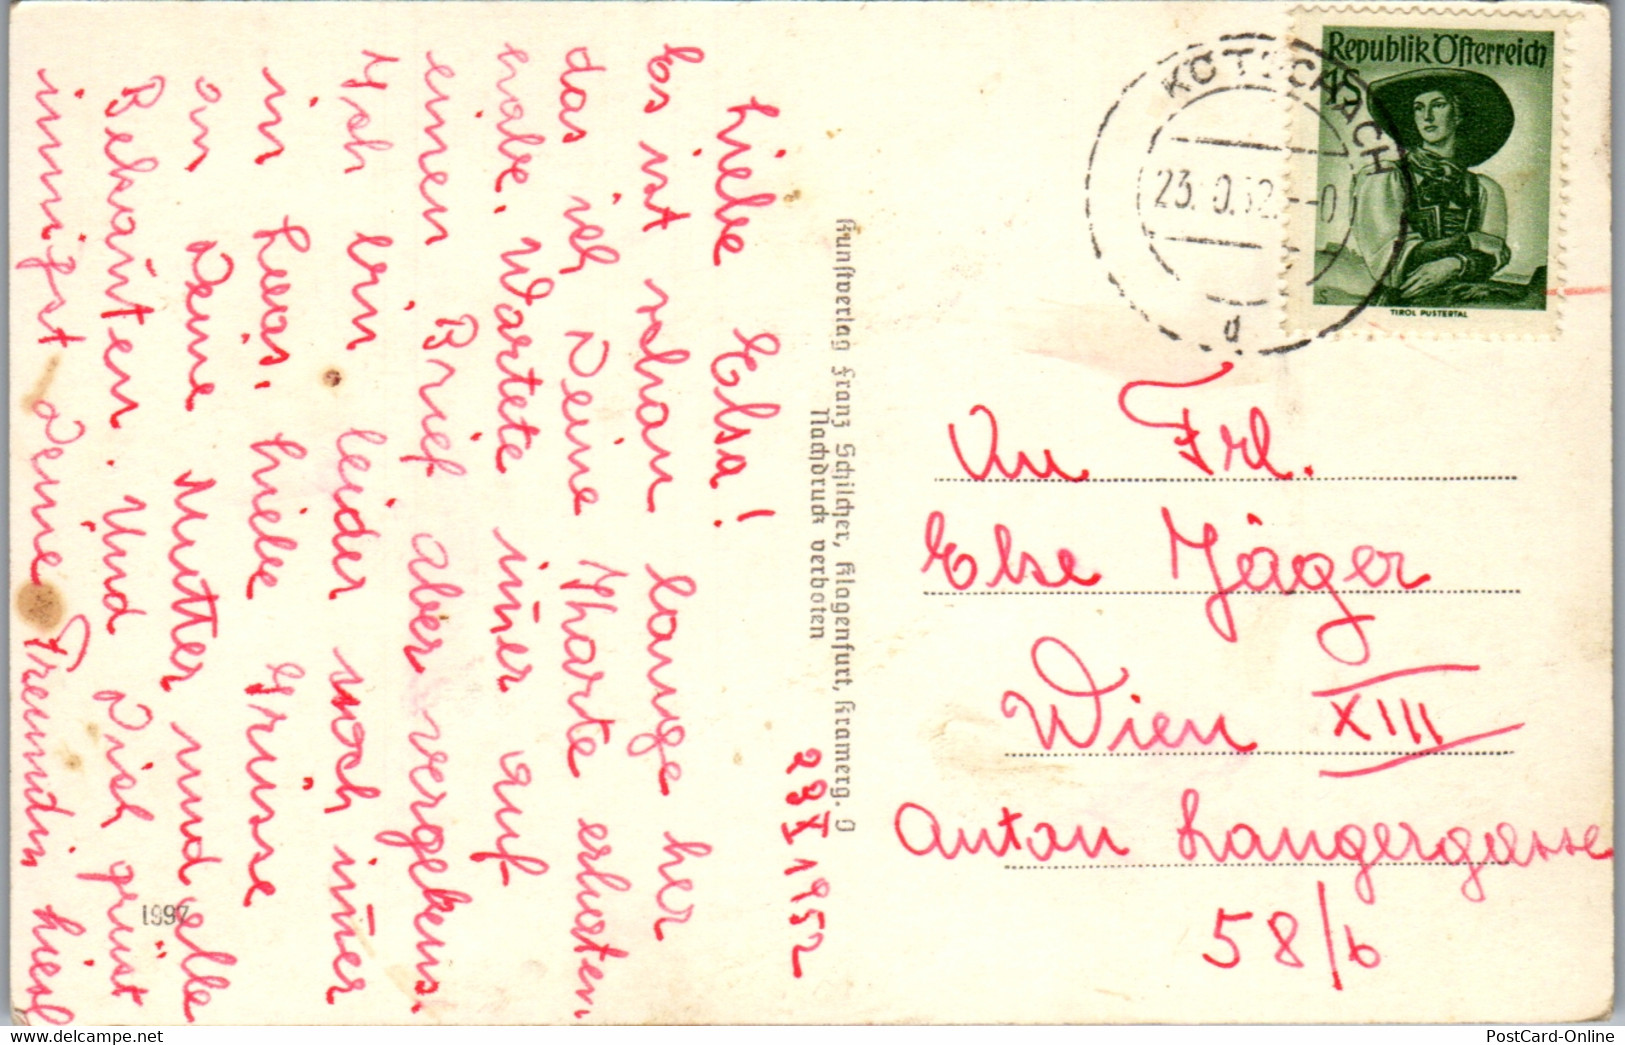 Liebe Elsa!
Es ist schon lange her
das ich Deine Kharte erhalten
habe. Wartete im̄er auf
einen Brief aber vergebens.
Ich bin leider noch im̄er
in Lwas. Viele Grüsse
an Deine Mutter und alle
Bekan̄ten. Und Dich grüst
innigst Deine Freundin
23 X 1952
Kunstverlag Franz Schilcher, Klagenfurt, Kramerg. 9
Nachdruck verboten
1997
KÖTSCHACH
23. 0.52. -0
d
Republik Österreich
TIROL PUSTERTAL
An Frl.
Else Jäger
Wien XIII
Anton Langergasse
58/b
PostCard-Online